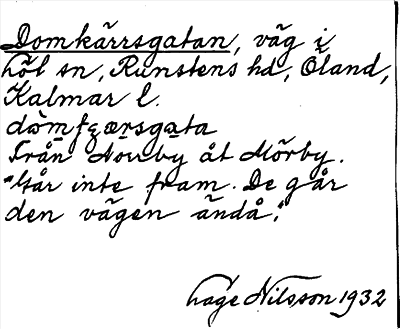 Domkärrsgatan, väg i
höl sn, Runstens hd, Öland,
Kalmar l.
Från Norrby åt Mörby.
"Går inte fram. De går
den vägen ändå."
Hage Nilsson 1932